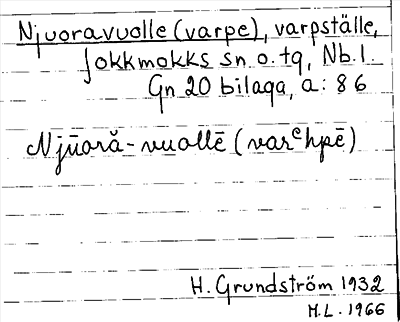 Njuoravuolle (varpe), varpställe,
Jokkmokks sn. o. tg, Nb. l.
Gn 20 bilaga, a: 86
Njūoră-vuollē (varᵉhpē)
H. Grundström 1932
H.L. 1966